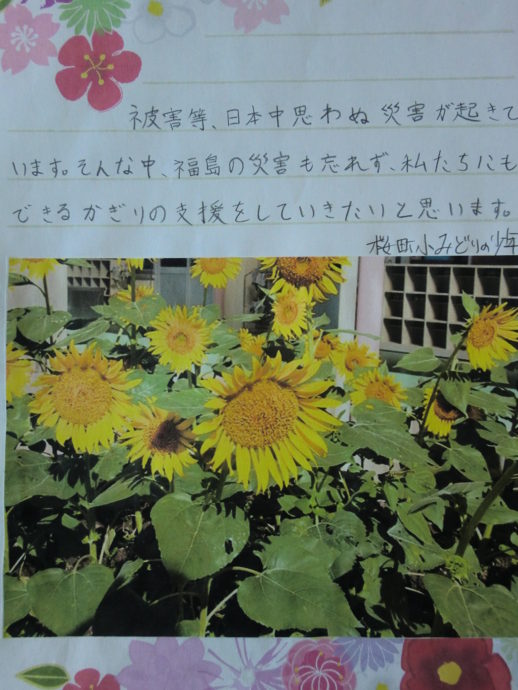 被害等、日本中思わぬ災害が起きて
います。そんな中、福島の災害も忘れず、私たちにも
できるかぎりの支援をしていきたいと思います。
桜町小みどりの少年